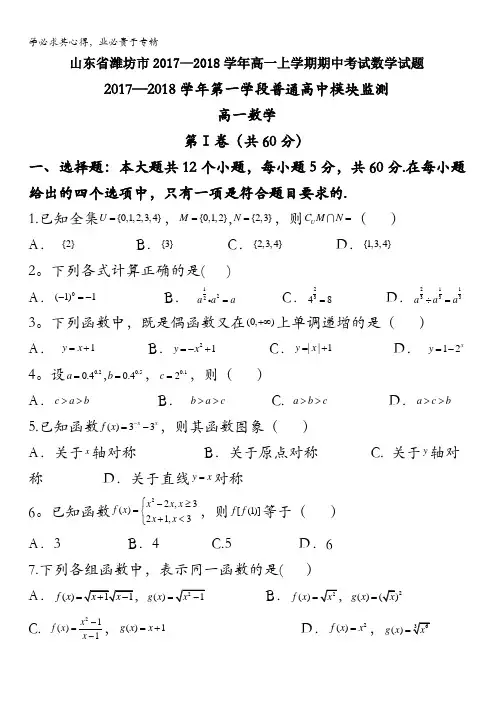 学必求其心得，业必贵于专精
山东省潍坊市2017—2018学年高一上学期期中考试数学试题
2017—2018学年第一学段普通高中模块监测
高一数学
第Ⅰ卷（共60分）
一、选择题：本大题共12个小题，每小题5分，共60分.在每小题
给出的四个选项中，只有一项是符合题目要求的.
1.已知全集U={0,1,2,3,4}，M={0,1,2},N={2,3}，则C_U M∩N=（ ）
A． {2} B．{3} C．{2,3,4} D．{1,3,4}
2。下列各式计算正确的是( )
A．(-1)^0=-1 B． a^{1/2}•a^2=a C．4^{2/3}=8 D．a^{2/3}÷a^{1/3}=a^{1/3}
3。下列函数中，既是偶函数又在(0,+∞)上单调递增的是（ ）
A． y=x+1 B．y=-x^2+1 C．y=|x|+1 D． y=1-2^x
4。设a=0.4^{0.2},b=0.4^{0.5}，c=2^{0.1}，则（ ）
A．c>a>b B． b>a>c C. a>b>c D．a>c>b
5.已知函数f(x)=3^{-x}-3^x，则其函数图象（ ）
A．关于x轴对称 B．关于原点对称 C. 关于y轴对
称 D．关于直线y=x对称
6。已知函数f(x)={x^2-2x,x≥3 2x+1,x<3，则f[f(1)]等于（ ）
A．3 B．4 C.5 D．6
7.下列各组函数中，表示同一函数的是( )
A．f(x)=√(x+1)√(x-1)，g(x)=√(x^2-1) B．f(x)=√(x^2)，g(x)=(√x)^2
C. f(x)=(x^2-1)/(x-1)，g(x)=x+1 D．f(x)=x^2，g(x)=∛(x^6)